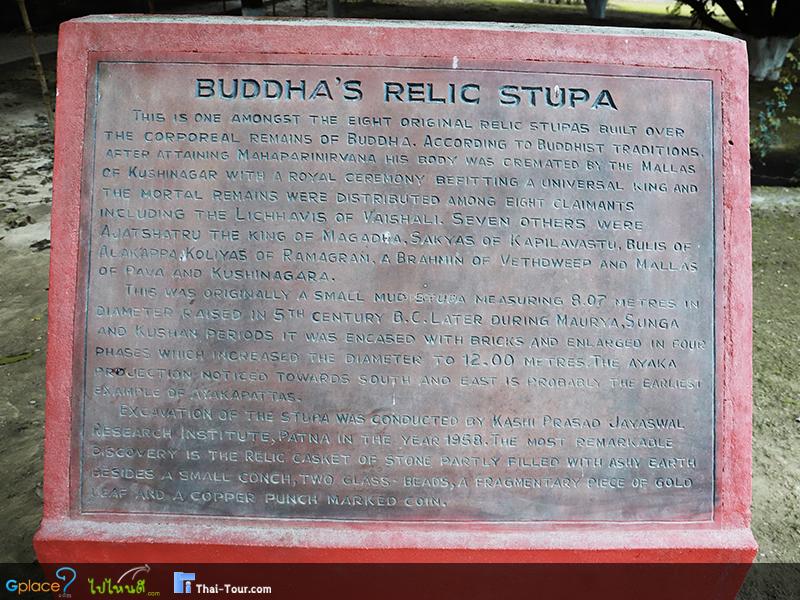 BUDDHA'S RELIC STUPA
THIS IS ONE AMONGST THE EIGHT ORIGINAL RELIC STUPAS BUILT OVER
THE CORPOREAL REMAINS OF BUDDHA. ACCORDING TO BUDDHIST TRADITIONS,
AFTER ATTAINING MAHAPARINIRVANA HIS BODY WAS CREMATED BY THE MALLAS
OF KUSHINAGAR WITH A ROYAL CEREMONY BEFITTING A UNIVERSAL KING AND
THE MORTAL REMAINS WERE DISTRIBUTED AMONG EIGHT CLAIMANTS
INCLUDING THE LICHHAVIS OF VAISHALI. SEVEN OTHERS WERE
AJATSHATRU THE KING OF MAGADHA, SAKYAS OF KAPILAVASTU, BULIS OF
ALAKAPPA, KOLIYAS OF RAMAGRAM, A BRAHMIN OF VETHDWEEP AND MALLAS
OF PAVA AND KUSHINAGARA.
THIS WAS ORIGINALLY A SMALL MUD STUPA MEASURING 8.07 METRES IN
DIAMETER RAISED IN 5TH CENTURY B.C. LATER DURING MAURYA, SUNGA
AND KUSHAN PERIODS IT WAS ENCASED WITH BRICKS AND ENLARGED IN FOUR
PHASES WHICH INCREASED THE DIAMETER TO 12.00 METRES. THE AYAKA
PROJECTION NOTICED TOWARDS SOUTH AND EAST IS PROBABLY THE EARLIEST
EXAMPLE OF AYAKAPATTAS.
EXCAVATION OF THE STUPA WAS CONDUCTED BY KASHI PRASAD JAYASWAL
RESEARCH INSTITUTE, PATNA IN THE YEAR 1958. THE MOST REMARKABLE
DISCOVERY IS THE RELIC CASKET OF STONE PARTLY FILLED WITH ASHY EARTH
BESIDES A SMALL CONCH, TWO GLASS-BEADS, A FRAGMENTARY PIECE OF GOLD
LEAF AND A COPPER PUNCH MARKED COIN.
Gplace ไปไหนดี.com Thai-Tour.com